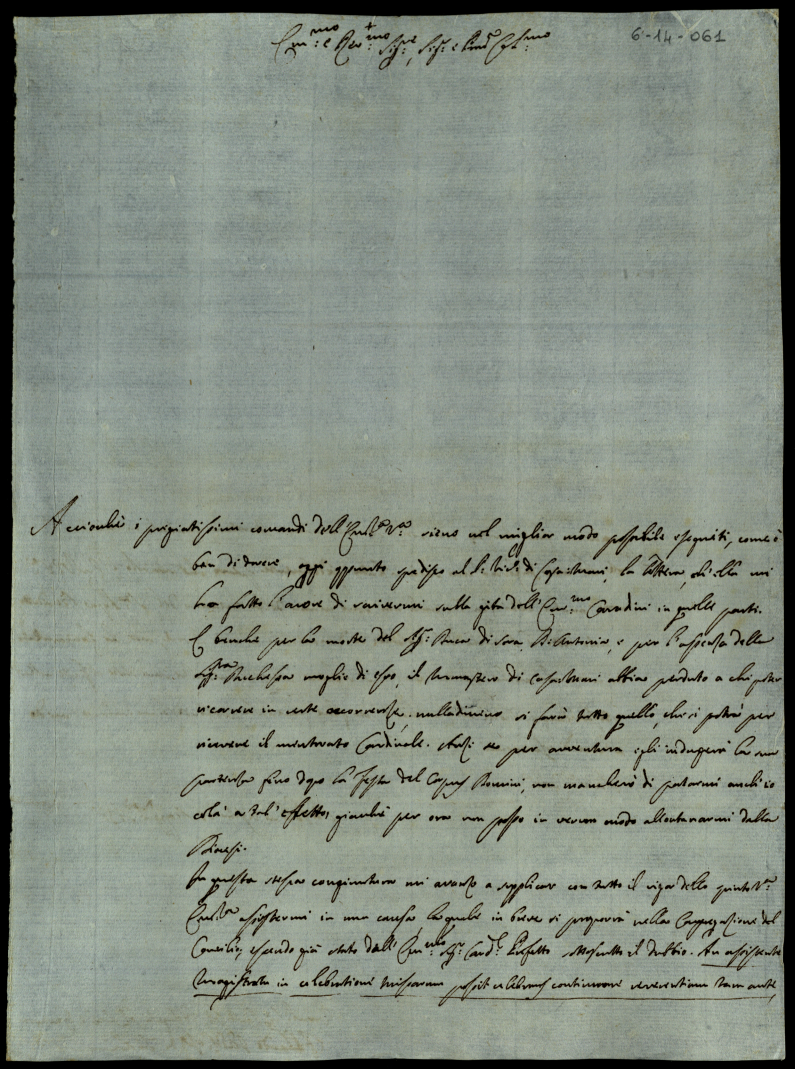 6-14-061
Em.mo e Rev.mo Sig.re, Sig.r e Pad. Col.mo
Acciocchè i pregiatissimi comandi dell'Em.za V.ra sieno nel miglior modo possibile eseguiti, come è
ben di dovere, oggi appunto spedisco al P. di Casamari, la lettera, ch'ella mi
ha fatto l'onore di scrivermi sulla gita dell'Em.mo Corradini in quelle parti.
E benchè per la morte del Sig. Duca di Sora D. Antonio, e per l'assenza della
Sig.ra Duchessa moglie di esso, il Monastero di Casamari abbia perduto a chi poter
ricorrere in certe occorrenze, nulladimeno si farà tutto quello, che si potrà per
ricevere il mentovato Cardinale. Anzi se per avventura egli indugierà la sua
partenza fino dopo la Festa del Corpus Domini, non mancherò di portarmi anch'io
colà a tal'effetto, giacchè per ora non posso in verun modo allontanarmi dalla
Diocesi.
In questa stessa congiuntura mi avanzo a supplicar con tutto il vigor dello spirito V.ra
Em.za assistermi in una causa, la quale in breve si proporrà nella Congregazione del
Concilio, essendo già stato dall'Em.mo Sig. Card. Prefetto sottoscritto il dubbio. An assistente
Magistratu in celebratione missarum possit celebrans continuare reverentiam tam ante,